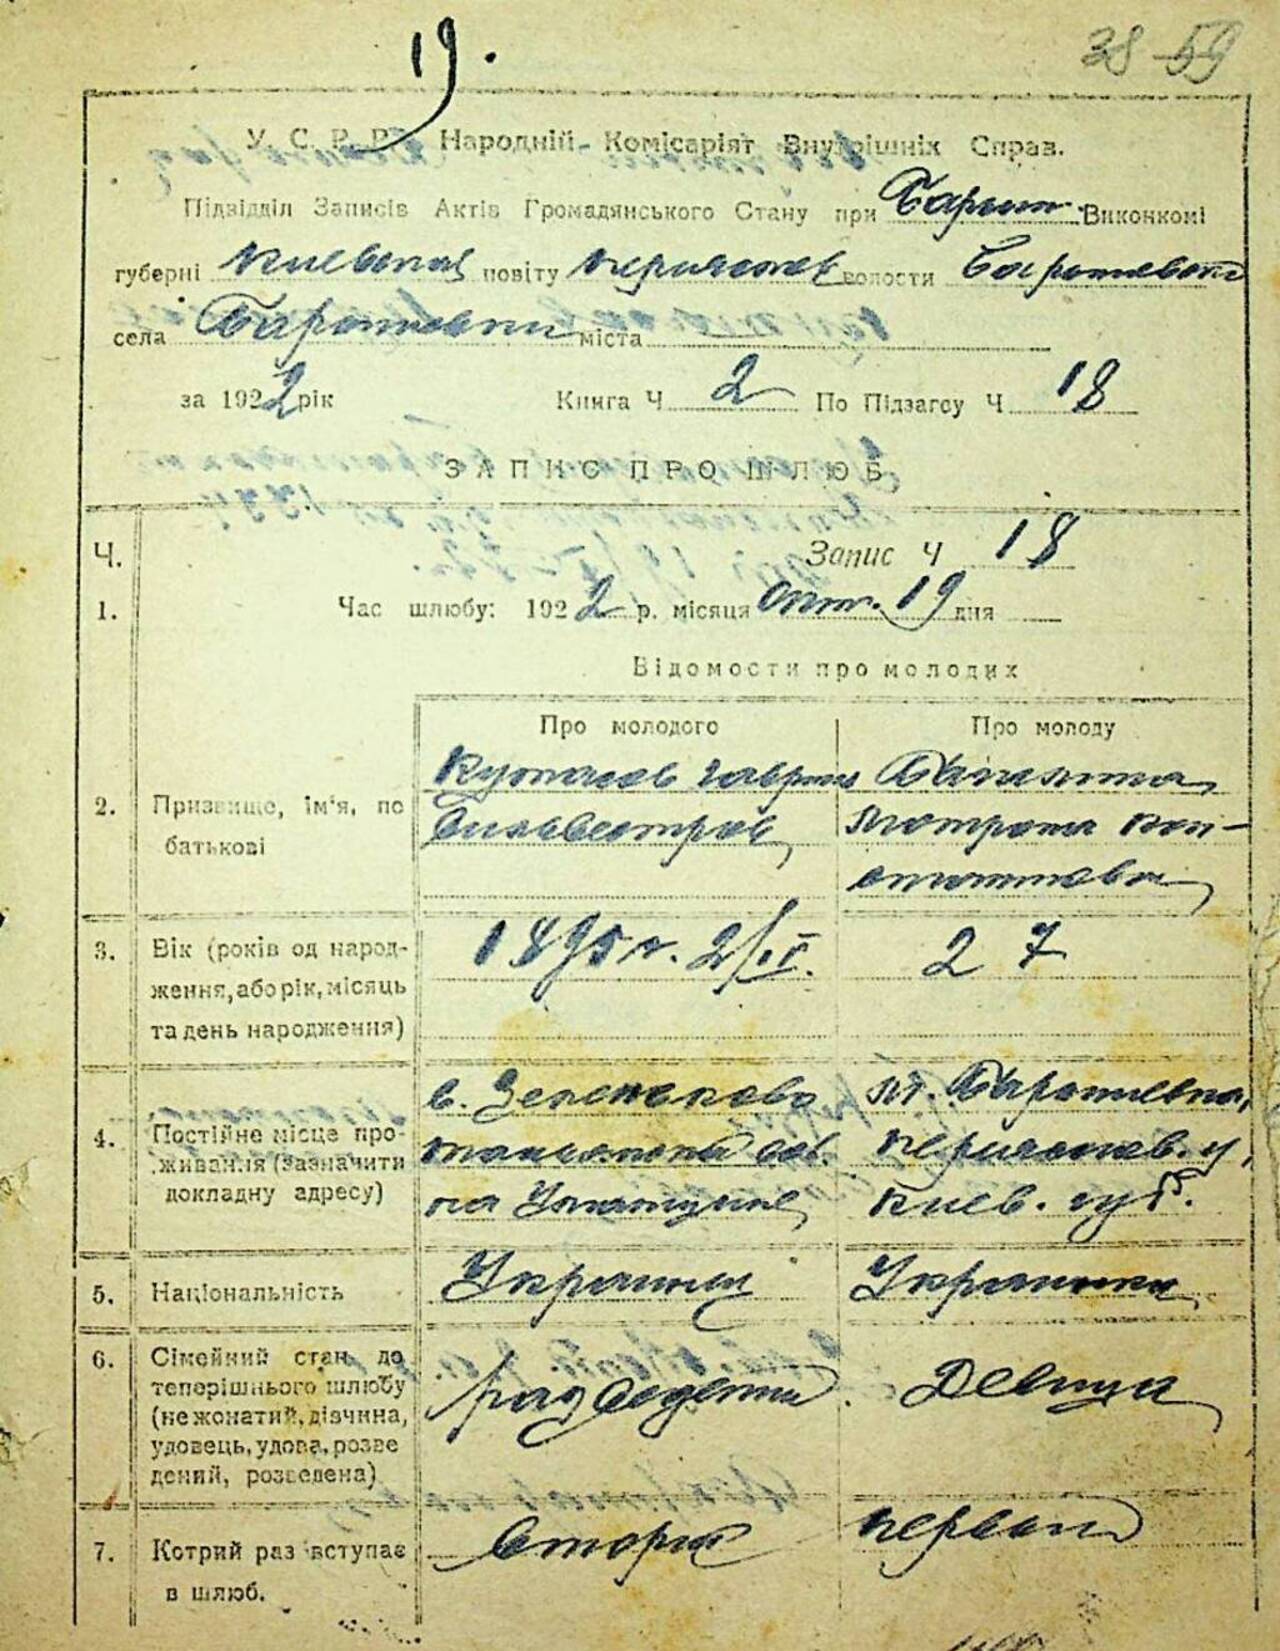 19.
38 59
У. С. Р. Р. Народній Комісаріят Внутрішніх Справ.
Підвідділ Записів Актів Громадянського Стану при Барыш. Виконкомі
губерні Киевской повіту Переяслав волости Барышевской
села Барышевки міста
за 1922 рік Книга Ч 2 По Підзагсу Ч 18
ЗАПИС ПРО ШЛЮБ
Ч. Запис Ч 18
1. Час шлюбу: 1922 р. місяця Окт. 19 дня
Відомости про молодих
Про молодого Про молоду
2. Призвище, ім'я, по батькові
Гаврил
Сильвестров
Мотрона Кон-
стантиновна
3. Вік (років од народ-
ження, або рік, місяць
та день народження)
1895 г. 2/
27
4. Постійне місце про-
живання (зазначити
докладну адресу)
с.
на
м. Барышевка,
Переяслав. у,
Киев. губ.
5. Національність Украинец Украинка
6. Сімейний стан до
теперішнього шлюбу
(не жонатий, дівчина,
удовець, удова, розве
дений, розведена)
разведенный Девица
7. Котрий раз вступає
в шлюб.
вторый первый